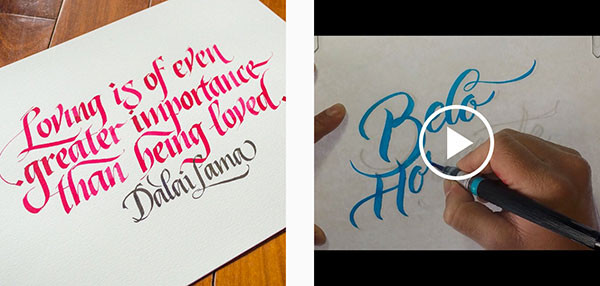 Loving is of even
greater importance
than being loved.
Dalai Lama
Belo
Ho